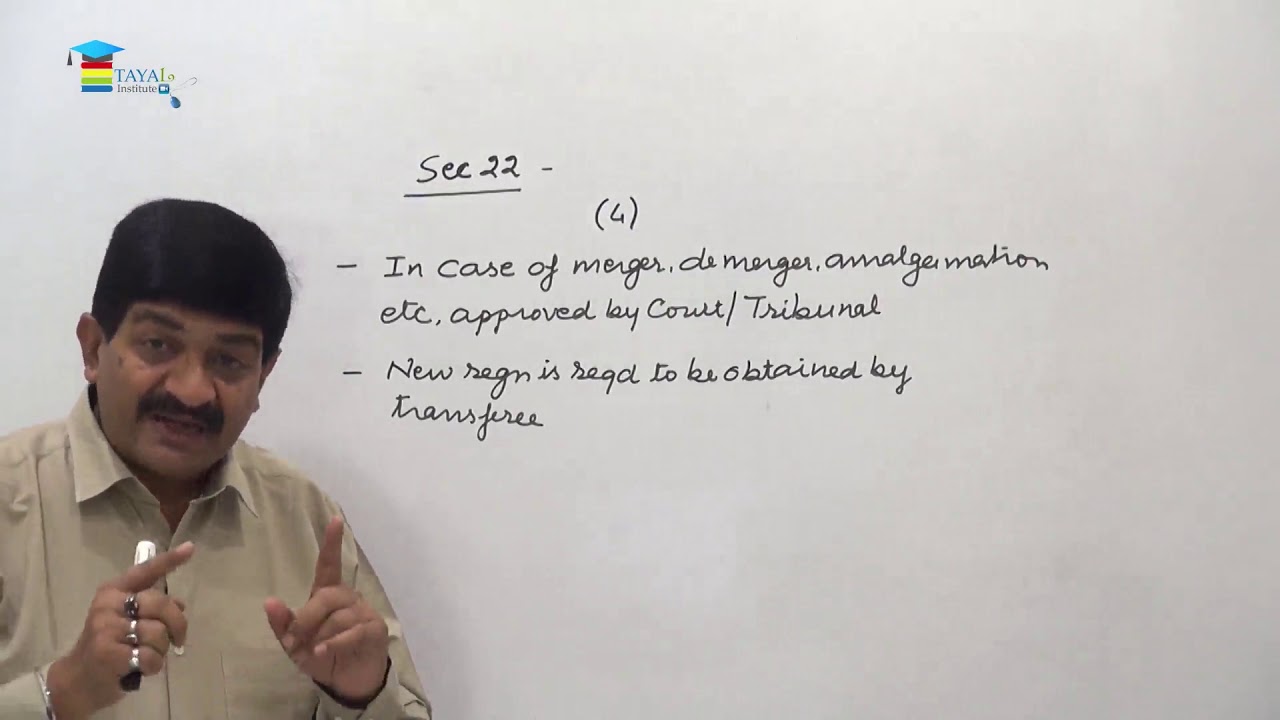 TAYAL
Institute
Sec 22 -
(4)
- In case of merger, demerger, amalgamation
etc, approved by Court/Tribunal
- New regn is reqd to be obtained by
transferee